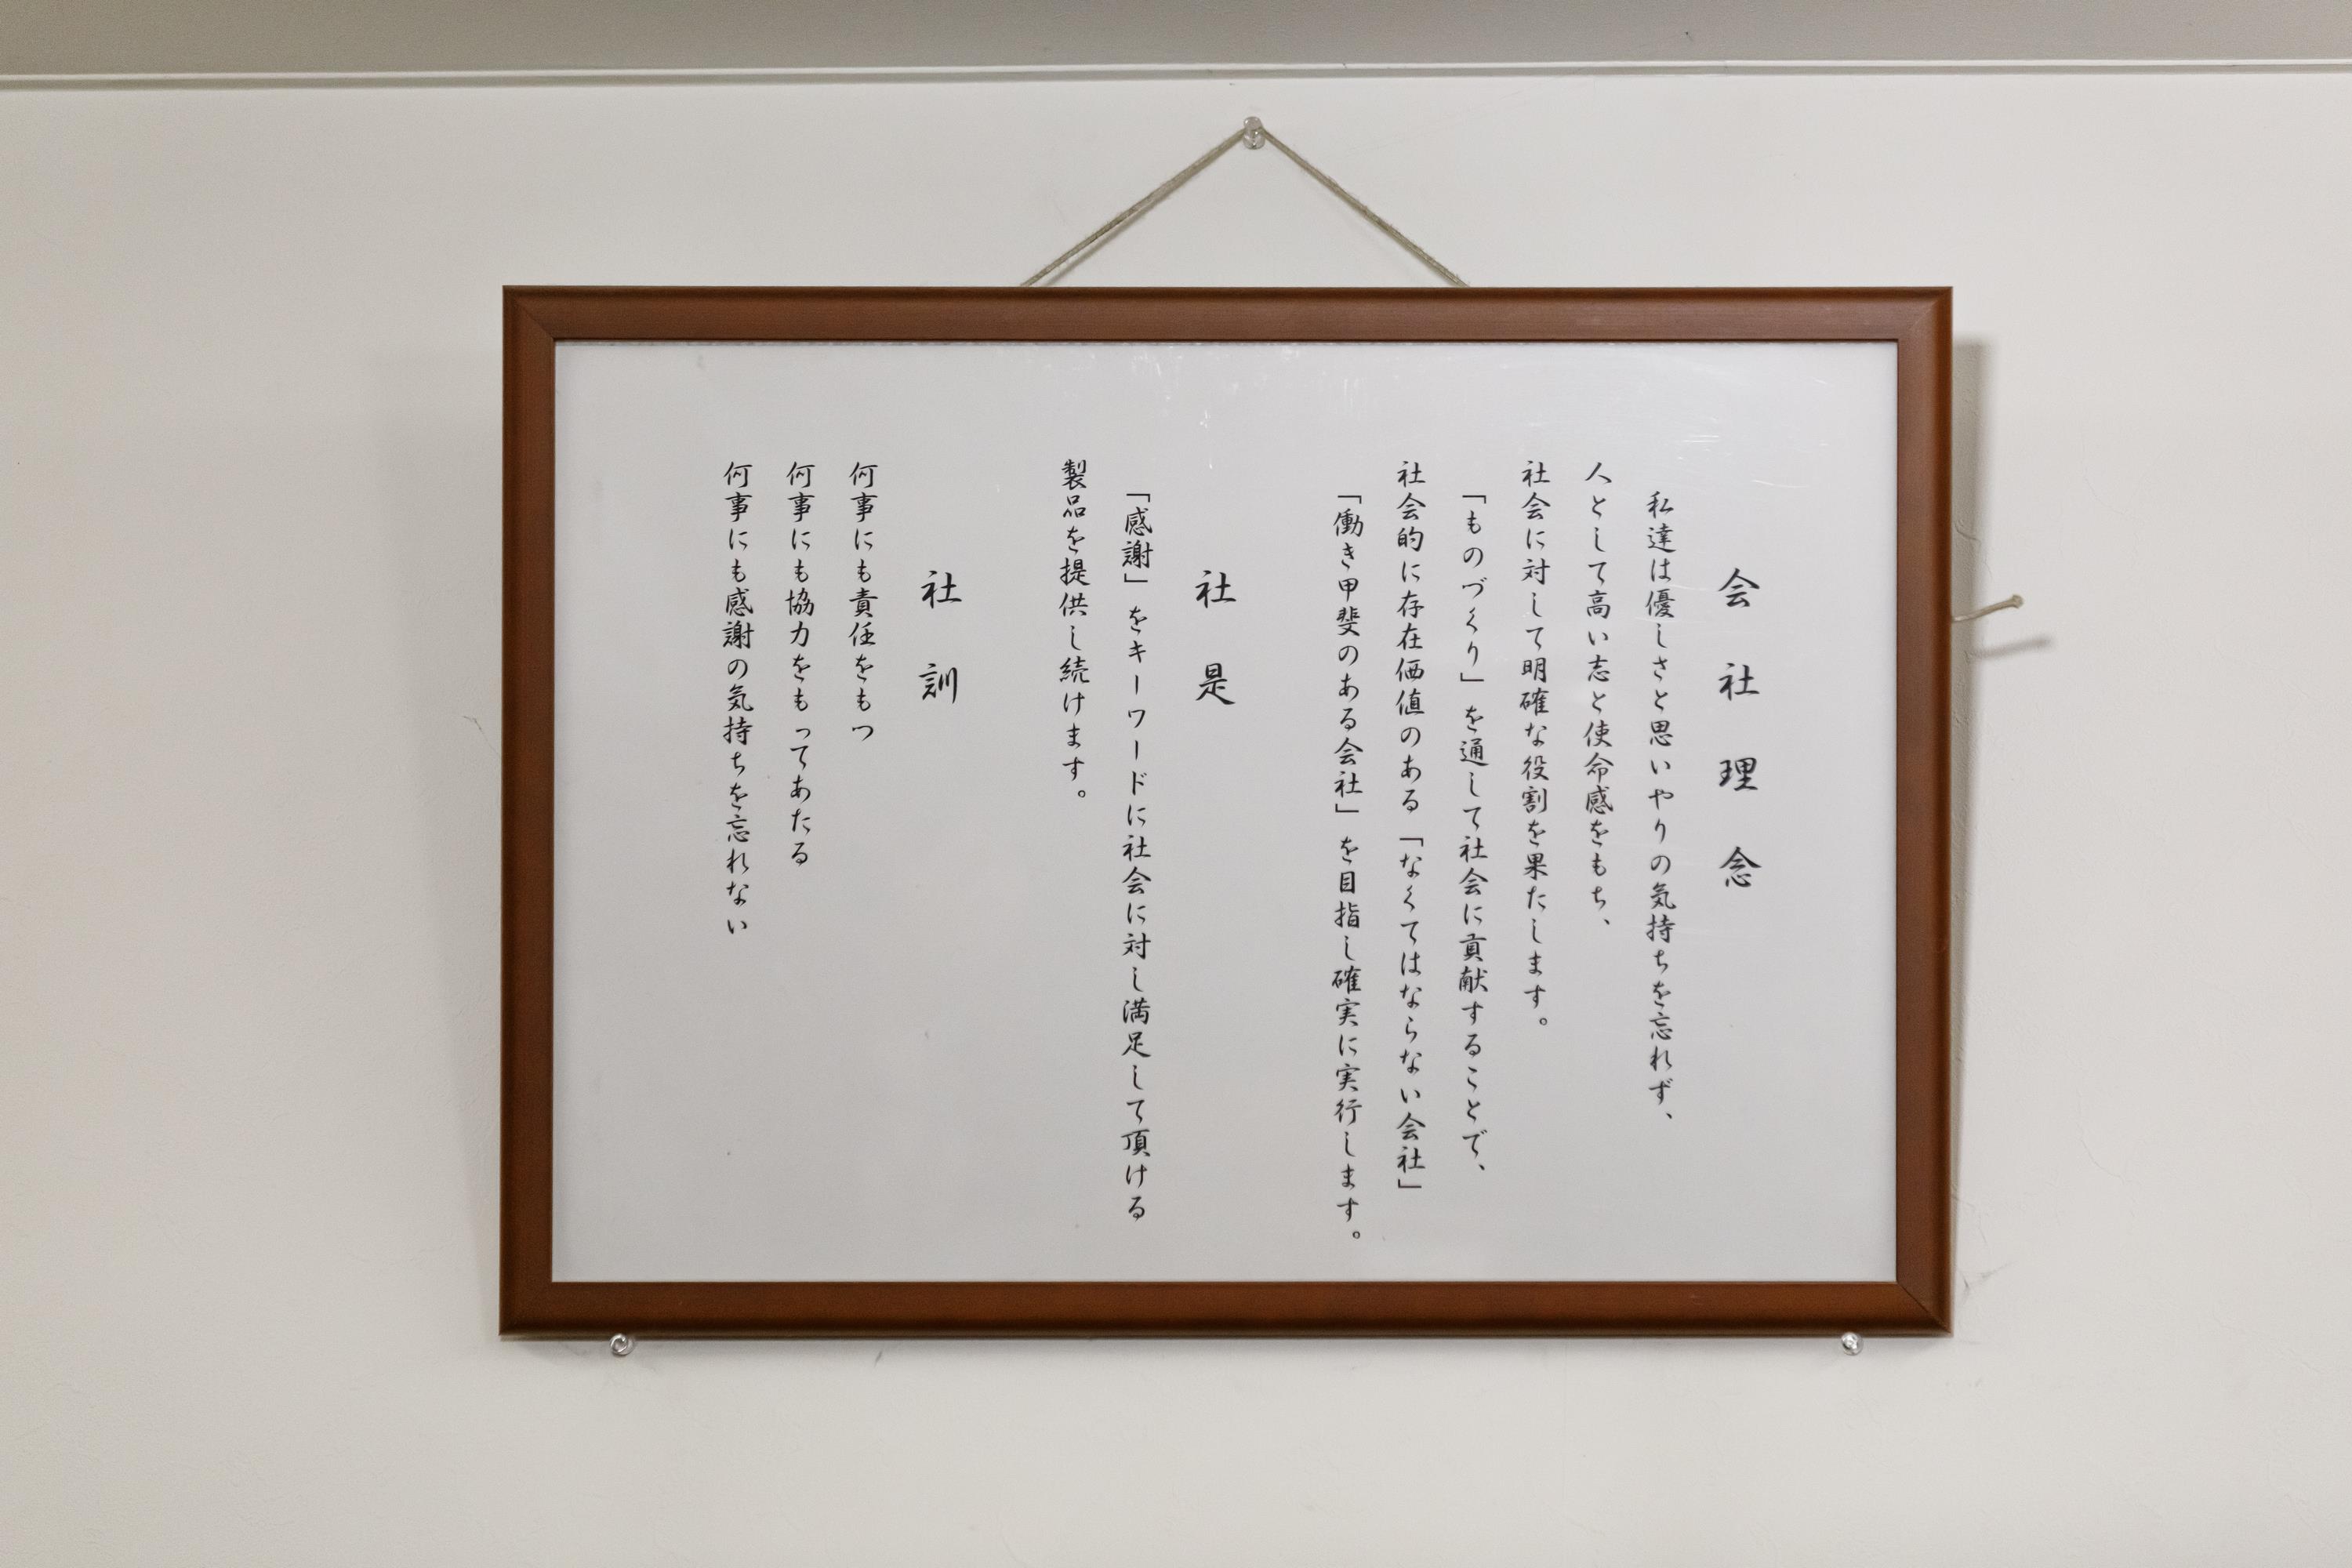 会社理念
私達は優しさと思いやりの気持ちを忘れず、
人として高い志と使命感をもち、
社会に対して明確な役割を果たします。
「ものづくり」を通して社会に貢献することで、
社会的に存在価値のある「なくてはならない会社」
「働き甲斐のある会社」を目指し確実に実行します。
社是
「感謝」をキーワードに社会に対し満足して頂ける
製品を提供し続けます。
社訓
何事にも責任をもつ
何事にも協力をもってあたる
何事にも感謝の気持ちを忘れない